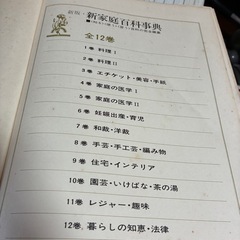 新版・新家庭百科事典
全12巻
1巻 料理Ⅰ
2巻 料理Ⅱ
3巻 エチケット・美容・手紙
4巻 家庭の医学Ⅰ
5巻 家庭の医学Ⅱ
6巻 妊娠出産・育児
7巻 和裁・洋裁
8巻 手芸・手工芸・編み物
9巻 住宅・インテリア
10巻 園芸・いけばな・茶の湯
11巻 レジャー・趣味
12巻 暮らしの知恵・法律